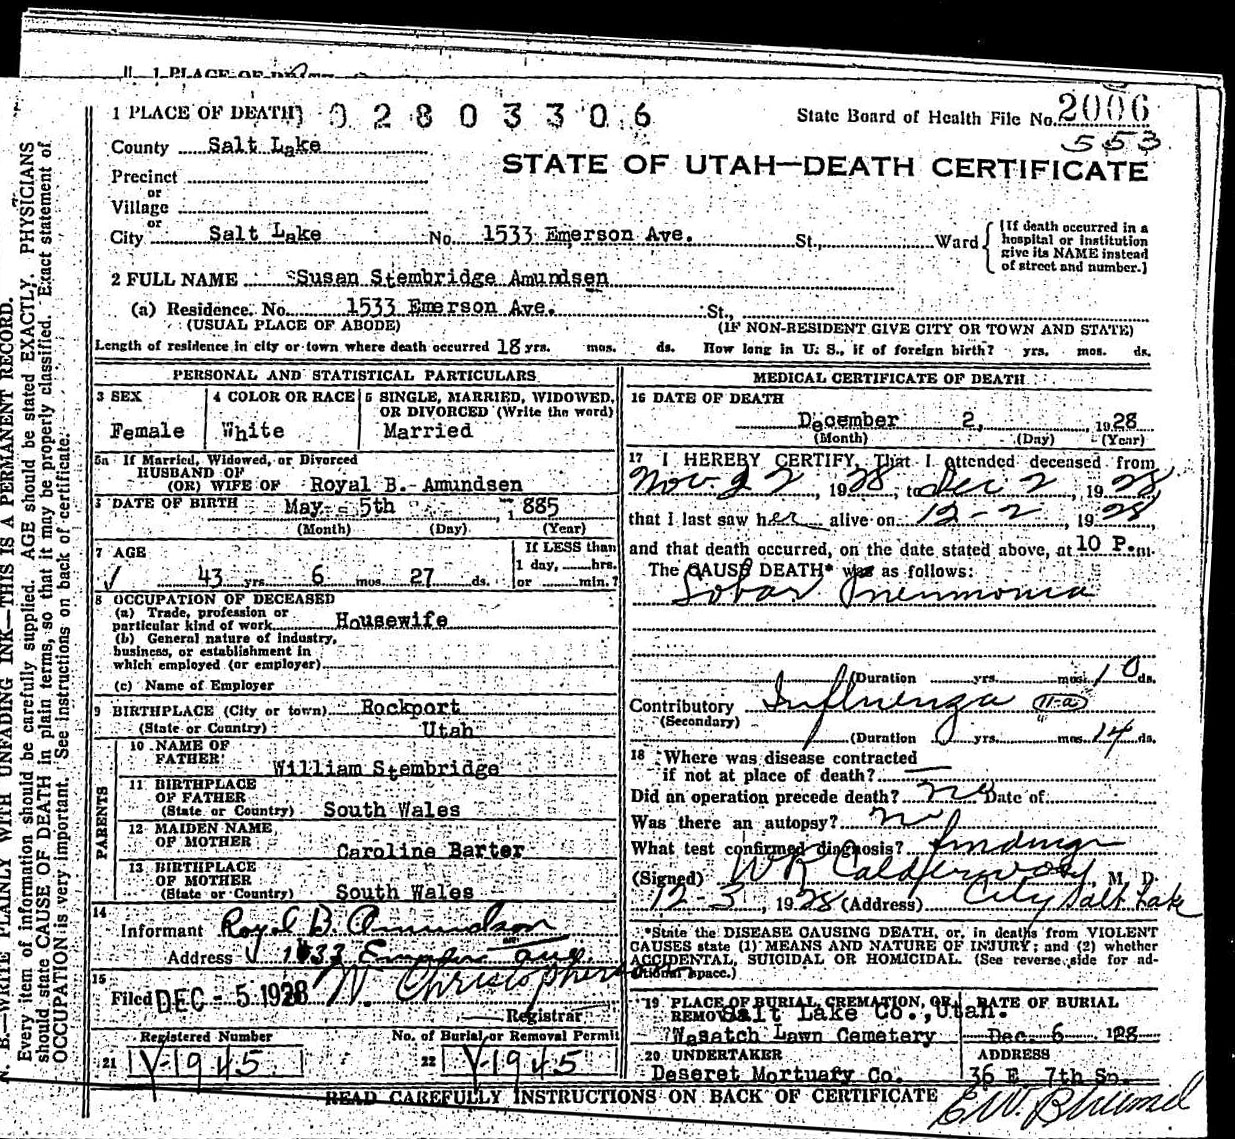 1 PLACE OF DEATH
0 2 8 0 3 3 0 6
State Board of Health File No. 2006
553
County Salt Lake
STATE OF UTAH—DEATH CERTIFICATE
Precinct
or
Village
or
City Salt Lake No. 1533 Emerson Ave. St., Ward
[If death occurred in a hospital or institution give its NAME instead of street and number.]
2 FULL NAME Susan Stembridge Amundsen
(a) Residence. No. 1533 Emerson Ave. St.,
(USUAL PLACE OF ABODE) (IF NON-RESIDENT GIVE CITY OR TOWN AND STATE)
Length of residence in city or town where death occurred 18 yrs. mos. ds. How long in U. S., if of foreign birth? yrs. mos. ds.
PERSONAL AND STATISTICAL PARTICULARS
3 SEX
Female
4 COLOR OR RACE
White
5 SINGLE, MARRIED, WIDOWED,
OR DIVORCED (Write the word)
Married
5a If Married, Widowed, or Divorced
HUSBAND OF
(OR) WIFE OF Royal B. Amundsen
DATE OF BIRTH May 5th 885
(Month) (Day) (Year)
7 AGE
43 yrs 6 mos. 27 ds.
If LESS than
1 day, hrs.
or min.?
8 OCCUPATION OF DECEASED
(a) Trade, profession or
particular kind of work Housewife
(b) General nature of industry,
business, or establishment in
which employed (or employer)
(c) Name of Employer
9 BIRTHPLACE (City or town) Rockport
(State or Country) Utah
PARENTS
10 NAME OF
FATHER William Stembridge
11 BIRTHPLACE
OF FATHER
(State or Country) South Wales
12 MAIDEN NAME
OF MOTHER Caroline Barter
13 BIRTHPLACE
OF MOTHER
(State or Country) South Wales
14
Informant Royal B. Amundson
Address 1533
15
Filed DEC - 5 1928 W. Christopherson
Registrar
Registered Number No. of Burial or Removal Permit
21 Y-1945 22 Y-1945
MEDICAL CERTIFICATE OF DEATH
16 DATE OF DEATH
December 2, 1928
(Month) (Day) (Year)
17 I HEREBY CERTIFY, That I attended deceased from
Nov 22, 1928, to Dec 2, 1928,
that I last saw her alive on 12-2, 1928,
and that death occurred, on the date stated above, at 10 P.m.
The CAUSE DEATH* was as follows:
Lobar Pneumonia
(Duration yrs. mos. 10 ds.
Contributory Influenza 11-a
(Secondary)
(Duration yrs. mos. 14 ds.
18 Where was disease contracted
if not at place of death? —
Did an operation precede death? no Date of
Was there an autopsy? no
What test confirmed diagnosis? findings
(Signed) W R Calderwood M. D.
12-3, 1928 (Address) City Salt Lake
*State the DISEASE CAUSING DEATH, or, in deaths from VIOLENT
CAUSES state (1) MEANS AND NATURE OF INJURY; and (2) whether
ACCIDENTAL, SUICIDAL OR HOMICIDAL. (See reverse side for ad-
ditional space.)
19 PLACE OF BURIAL, CREMATION, OR DATE OF BURIAL
REMOVAL Salt Lake Co., Utah.
Wasatch Lawn Cemetery Dec. 6 1928
20 UNDERTAKER ADDRESS
Deseret Mortuary Co. 36 E 7th So.
READ CAREFULLY INSTRUCTIONS ON BACK OF CERTIFICATE
N. B.—WRITE PLAINLY WITH UNFADING INK—THIS IS A PERMANENT RECORD.
Every item of information should be carefully supplied. AGE should be stated EXACTLY. PHYSICIANS
should state CAUSE OF DEATH in plain terms, so that it may be properly classified. Exact statement of
OCCUPATION is very important. See instructions on back of certificate.